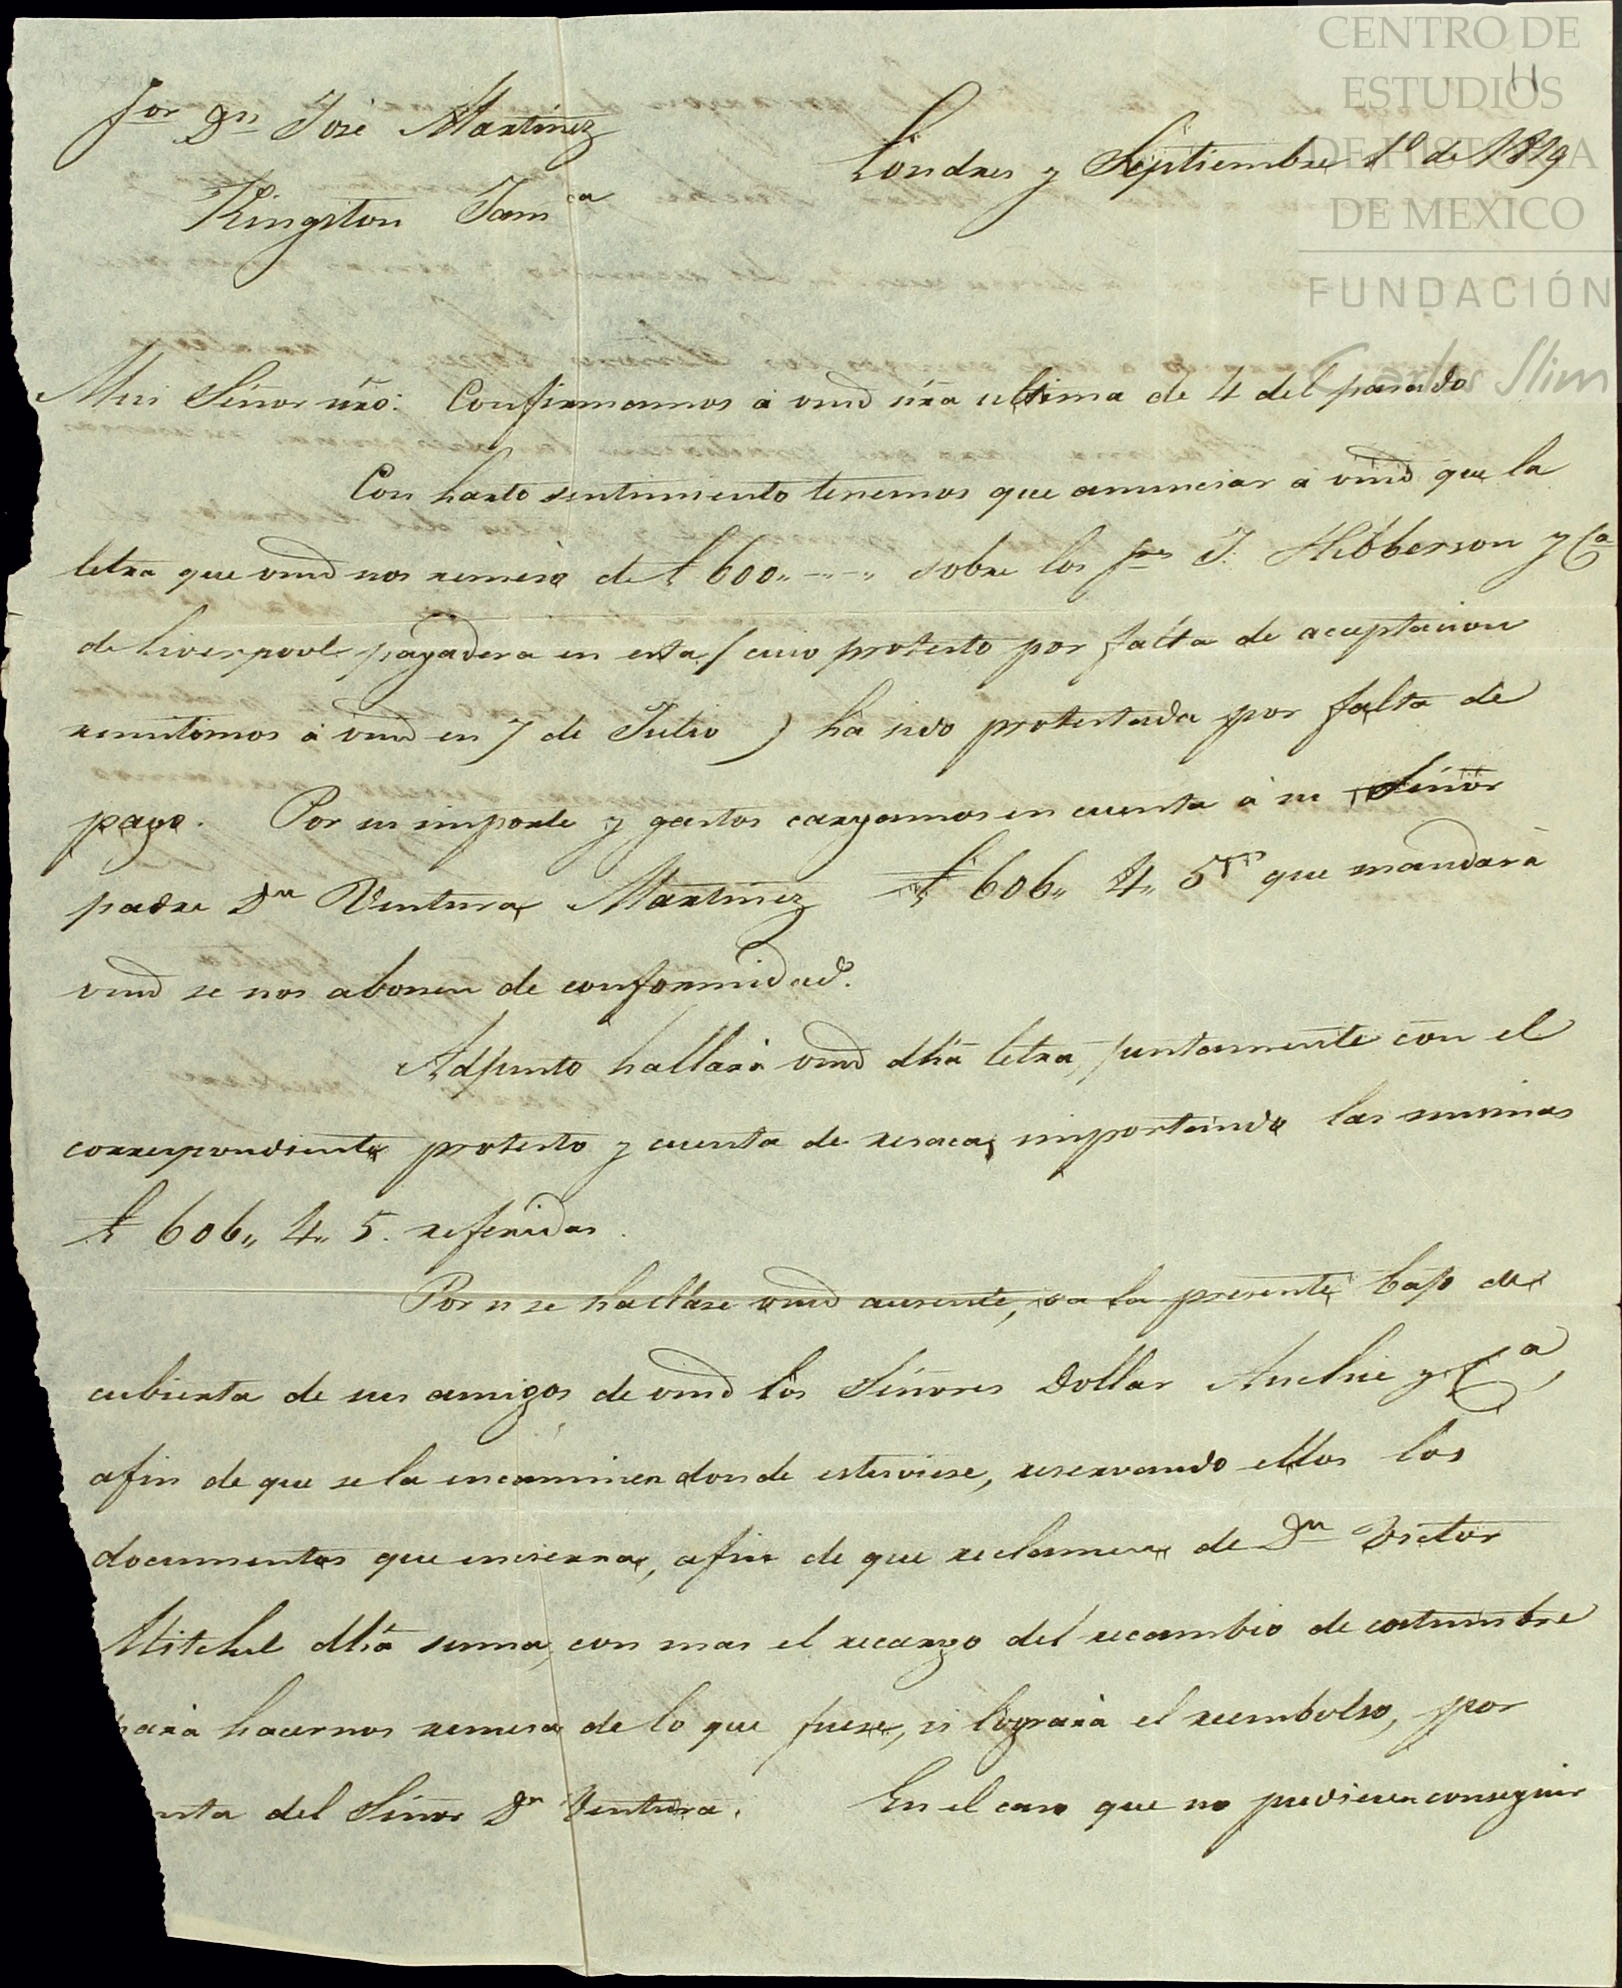 CENTRO DE
ESTUDIOS
DE HISTORIA
DE MEXICO
FUNDACIÓN
Carlos Slim
11
Sor Dn José Martinez
Londres y Septiembre 1º de 1819
Kingston Jamca
Mui Señor nro: Confirmamos á vmd nra ultima de 4 del pasado
Con harto sentimiento tenemos que anunciar á vmd que la
letra que vmd nos remesó de £ 600,, -- -- ,, sobre los Sres J. Hibberson y Ca
de Liverpool pagadera en esta / cuio protesto por falta de aceptacion
remitimos á vmd en 7 de Julio ) ha sido protestada por falta de
pago. Por su importe y gastos cargamos en cuenta á su Señor
padre Dn Ventura Martinez £ 606,, 4,, 5 que mandará
vmd se nos abonen de conformidad.
Adjunto hallará vmd dha letra, juntamente con el
correspondiente protesto y cuenta de resaca, importando las mismas
£ 606,, 4,, 5. referidas.
Por si se hallase vmd ausente, va la presente bajo de
cubierta de sus amigos de vmd los Señores Dollar Anchie y Ca,
afin de que se la encaminen donde estuviese, reservando ellos los
documentos que encierra, afin de que reclamen de Dn Victor
Mitchel dha suma, con mas el recargo del recambio de costumbre
para hacernos remesa de lo que fuese, si lograra el reembolso, por
nta del Señor Dn Ventura. En el caso que no pudiesen conseguir